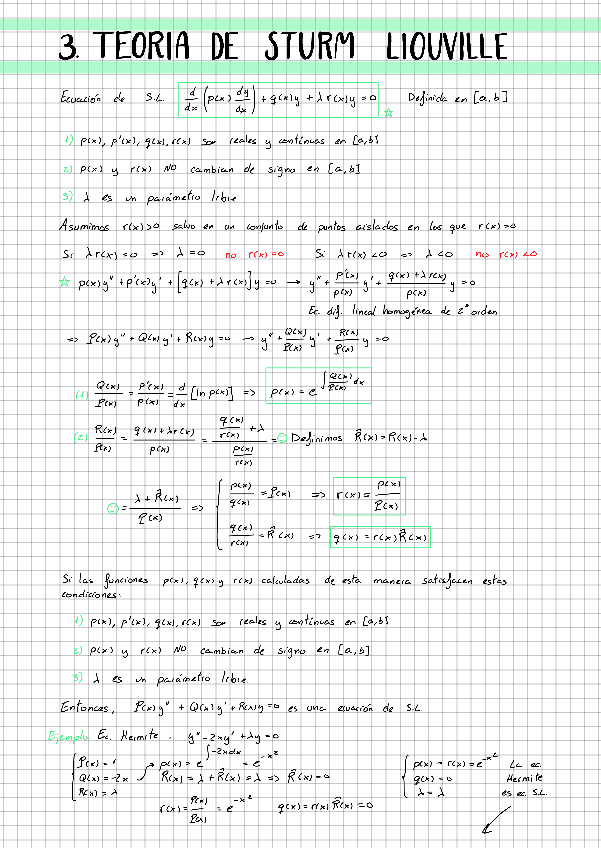 3. TEORIA DE STURM LIOUVILLE
Ecuación de S.L. d/dx (p(x) dy/dx) + q(x)y + λr(x)y = 0 Definida en [a,b]
☆
1) p(x), p'(x), q(x), r(x) son reales y continuas en [a,b]
2) p(x) y r(x) NO cambian de signo en [a,b]
3) λ es un parámetro libre
Asumimos r(x)>0 salvo en un conjunto de puntos aislados en los que r(x)=0
Si λr(x)=0 => λ=0 no r(x)=0 Si λr(x)<0 => λ<0 no r(x)<0
☆ p(x)y'' + p'(x)y' + [q(x) + λr(x)]y = 0 → y'' + p'(x)/p(x) y' + (q(x) + λr(x))/p(x) y = 0
Ec. dif. lineal homogénea de 2º orden
=> P(x)y'' + Q(x)y' + R(x)y = 0 → y'' + Q(x)/P(x) y' + R(x)/P(x) y = 0
(1) Q(x)/P(x) = p'(x)/p(x) = d/dx [ln p(x)] => p(x) = e^∫Q(x)/P(x) dx
(2) R(x)/P(x) = (q(x) + λr(x))/p(x) = (q(x)/r(x) + λ)/(p(x)/r(x)) = ☺ Definimos R̂(x) = R(x) - λ
☺ = (λ + R̂(x))/P(x) => { p(x)/q(x) = P(x) => r(x) = p(x)/P(x)
q(x)/r(x) = R̂(x) => q(x) = r(x)R̂(x)
Si las funciones p(x), q(x) y r(x) calculadas de esta manera satisfacen estas
condiciones:
1) p(x), p'(x), q(x), r(x) son reales y continuas en [a,b]
2) p(x) y r(x) NO cambian de signo en [a,b]
3) λ es un parámetro libre
Entonces, P(x)y'' + Q(x)y' + R(x)y = 0 es una ecuación de S.L.
Ejemplo Ec. Hermite. y'' - 2xy' + λy = 0
P(x) = 1 p(x) = e^∫-2xdx = e^-x² p(x) = r(x) = e^-x² La ec.
Q(x) = -2x R(x) = λ + R̂(x) = λ => R̂(x) = 0 q(x) = 0 Hermite
R(x) = λ λ = λ es ec. S.L.
r(x) = p(x)/P(x) = e^-x² q(x) = r(x)R̂(x) = 0